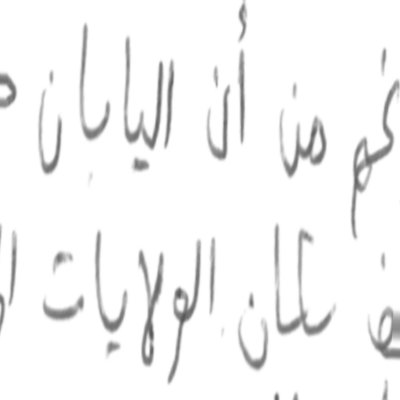 من أن اليابان
سكان الولايات